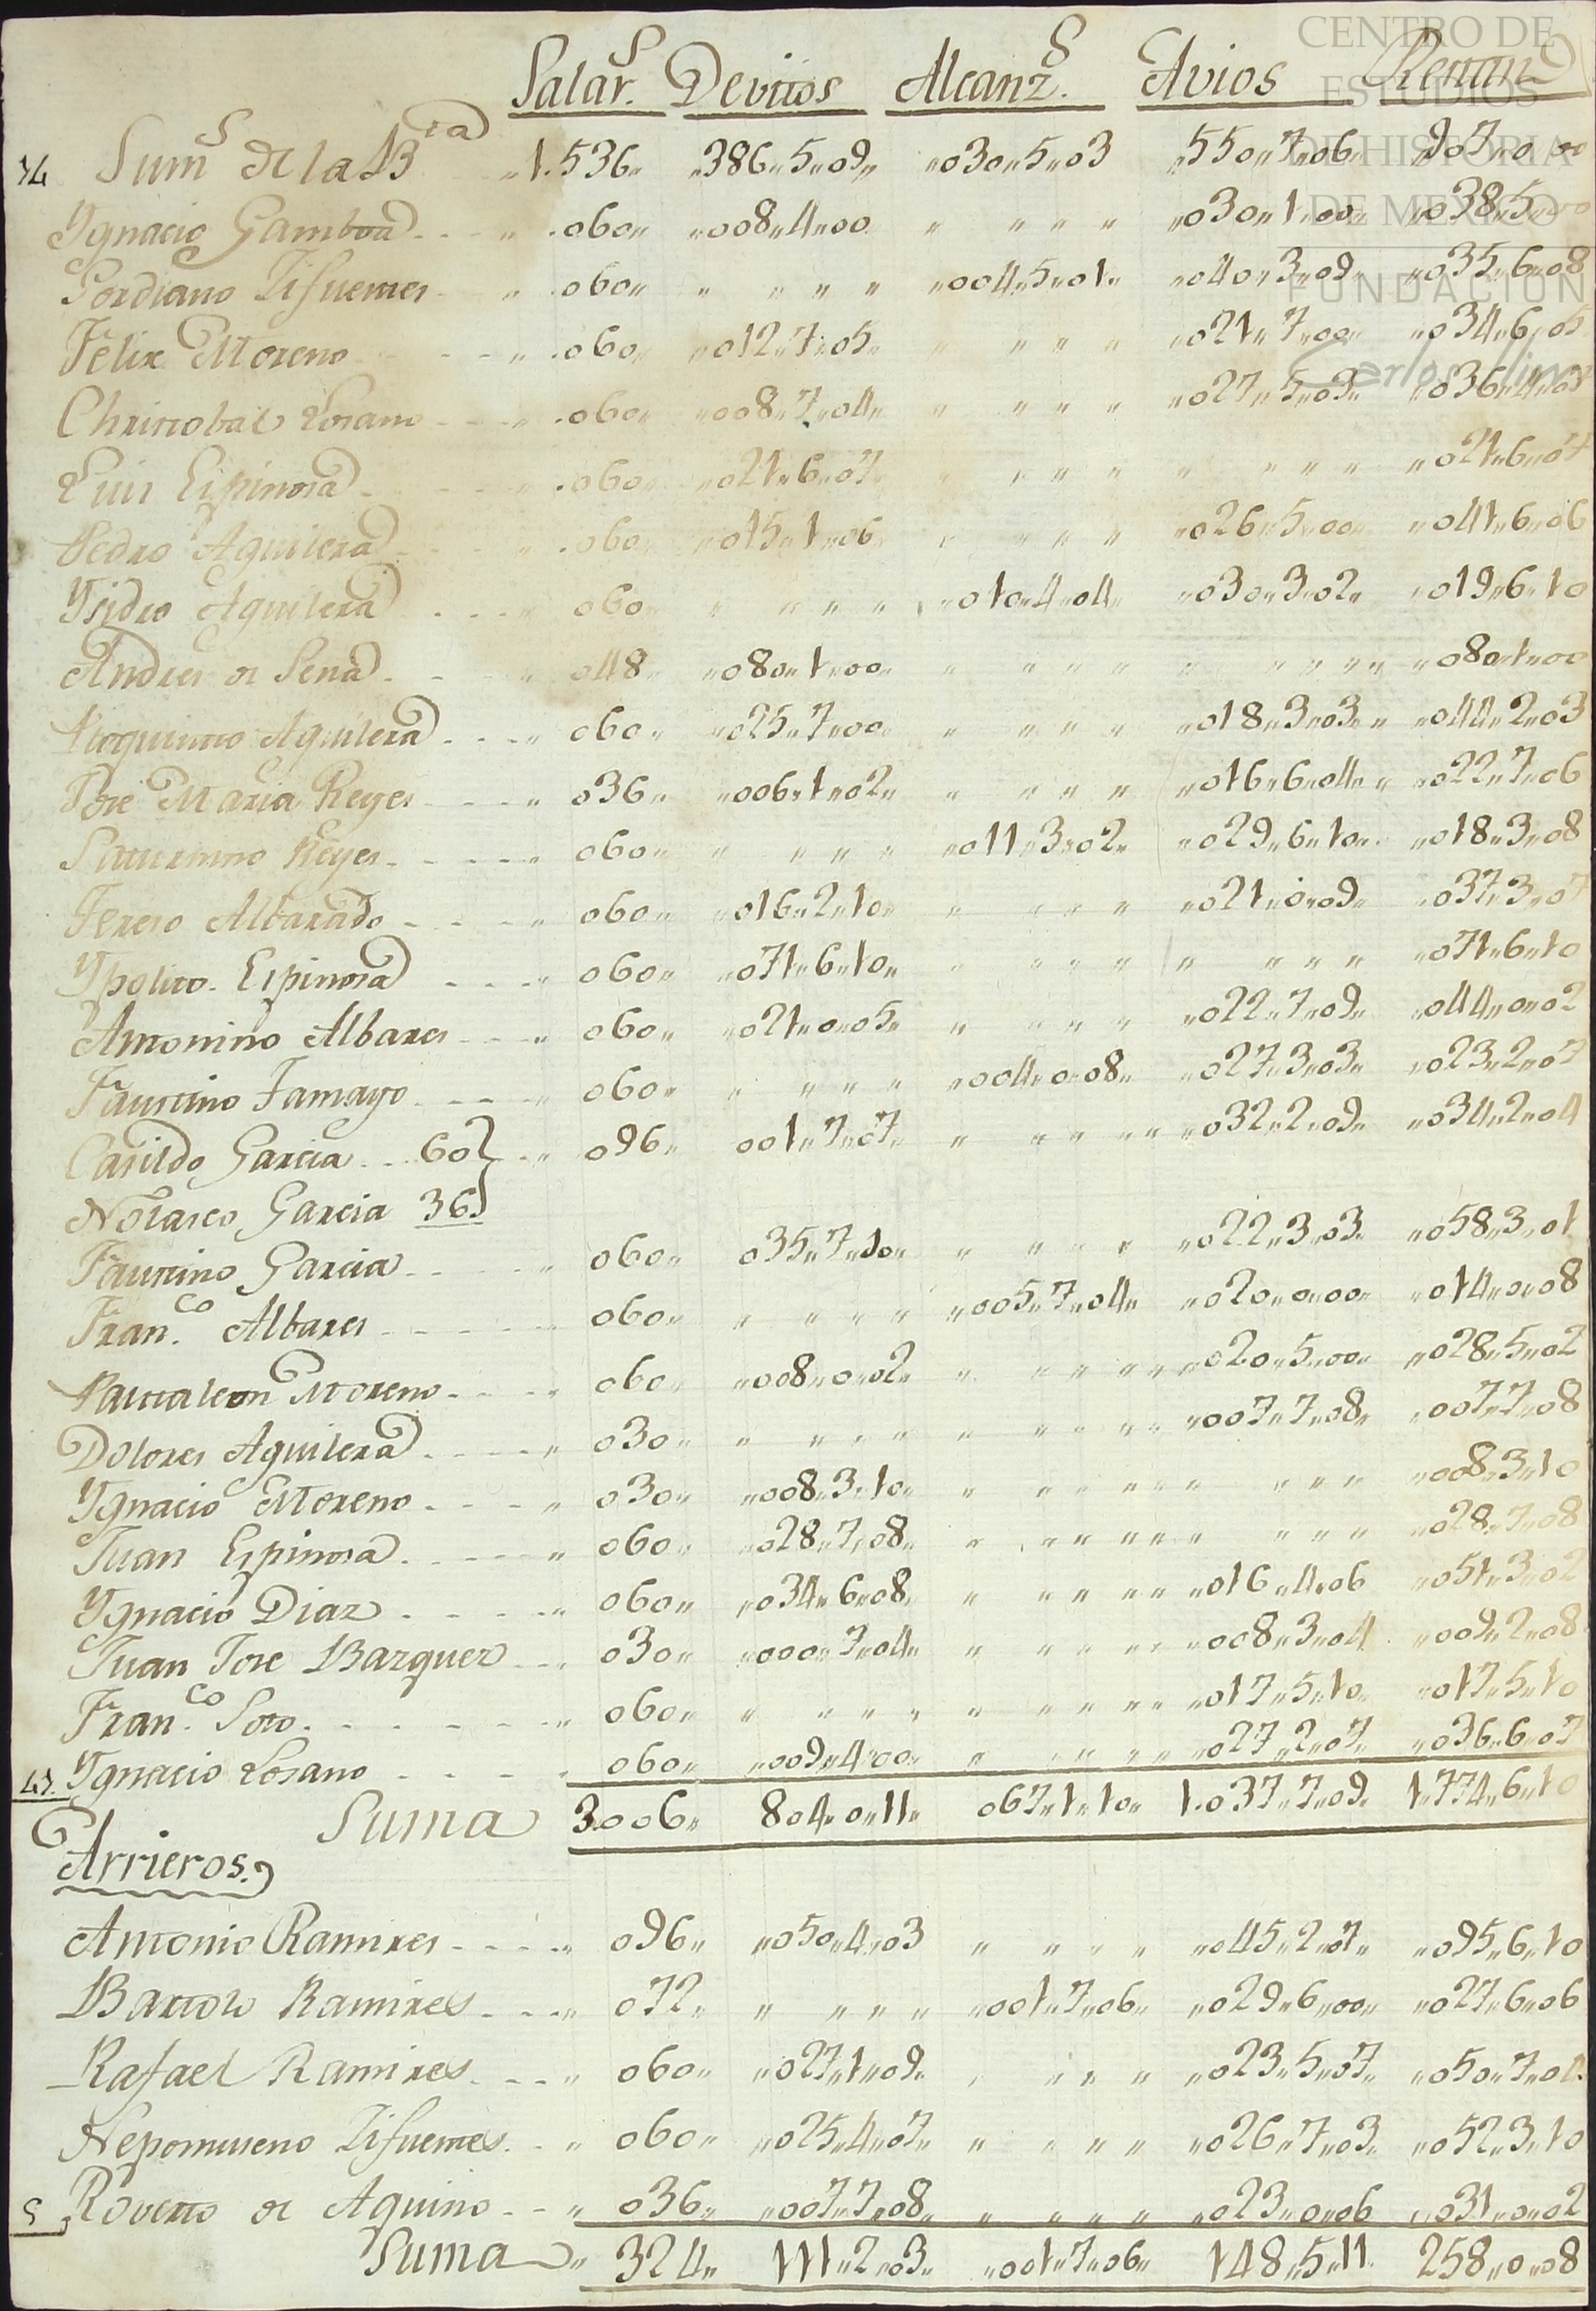 CENTRO DE
ESTUDIOS
DE HISTORIA
DE MEXICO
FUNDACION
Carlos Slim
Salar.s Devitos Alcanz.s Avios Restan
Sum.s de la B.ta 1.536 386,,5,,09 030,,5,,03 550,,7,,06 907,,0,,00
Ygnacio Gamboa 060 008,,4,,00 030,,1,,00 038,,5,,00
Gordiano Sifuentes 060 004,,5,,01 040,,3,,09 035,,6,,08
Felix Moreno 060 012,,7,,05 021,,7,,00 034,,6,,05
Christobal Losano 060 008,,7,,04 027,,5,,03 036,,4,,07
Luis Espinosa 060 021,,6,,07 021,,6,,07
Pedro Aguilera 060 015,,1,,06 026,,5,,00 041,,6,,06
Ysidro Aguilera 060 010,,4,,04 030,,3,,02 019,,6,,10
Andres de Sena 048 080,,1,,00 080,,1,,00
Aguilera 060 025,,7,,00 018,,3,,03 044,,2,,03
Jose Maria Reyes 036 006,,1,,02 016,,6,,04 022,,7,,06
Saturnino Reyes 060 011,,3,,02 029,,6,,10 018,,3,,08
Terezo Albarado 060 016,,2,,10 021,,0,,09 037,,3,,07
Ypolito Espinosa 060 071,,6,,10 071,,6,,10
Antonino Albares 060 021,,0,,05 022,,7,,09 044,,0,,02
Faustino Tamayo 060 004,,0,,08 027,,3,,03 023,,2,,07
Casildo Garcia 60 096 001,,7,,07 032,,2,,09 034,,2,,04
Nolasco Garcia 36
Faustino Garcia 060 035,,7,,10 022,,3,,03 058,,3,,01
Fran.co Albares 060 005,,7,,04 020,,0,,00 014,,0,,08
Pantaleon Moreno 060 008,,0,,02 020,,5,,00 028,,5,,02
Dolores Aguilera 030 007,,7,,08 007,,7,,08
Ygnacio Moreno 030 008,,3,,10 008,,3,,10
Juan Espinosa 060 028,,7,,08 028,,7,,08
Ygnacio Diaz 060 034,,6,,08 016,,4,,06 051,,3,,02
Juan Jose Bazquez 030 000,,7,,04 008,,3,,04 009,,2,,08
Fran.co Soto 060 017,,5,,10 017,,5,,10
Ygnacio Losano 060 009,,4,,00 027,,2,,07 036,,6,,07
Suma 3006 804,,0,,11 067,,1,,10 1.037,,7,,09 1.774,,6,,10
Arrieros
Antonio Ramires 096 050,,4,,03 045,,2,,07 095,,6,,10
Bartolo Ramires 072 001,,7,,06 029,,6,,00 027,,6,,06
Rafael Ramires 060 027,,1,,09 023,,5,,07 050,,7,,04
Nepomuseno Sifuentes 060 025,,4,,07 026,,7,,03 052,,3,,10
5 Roverto de Aquino 036 007,,7,,08 023,,0,,06 031,,0,,02
Suma 324 111,,2,,03 001,,7,,06 148,,5,,11 258,,0,,08